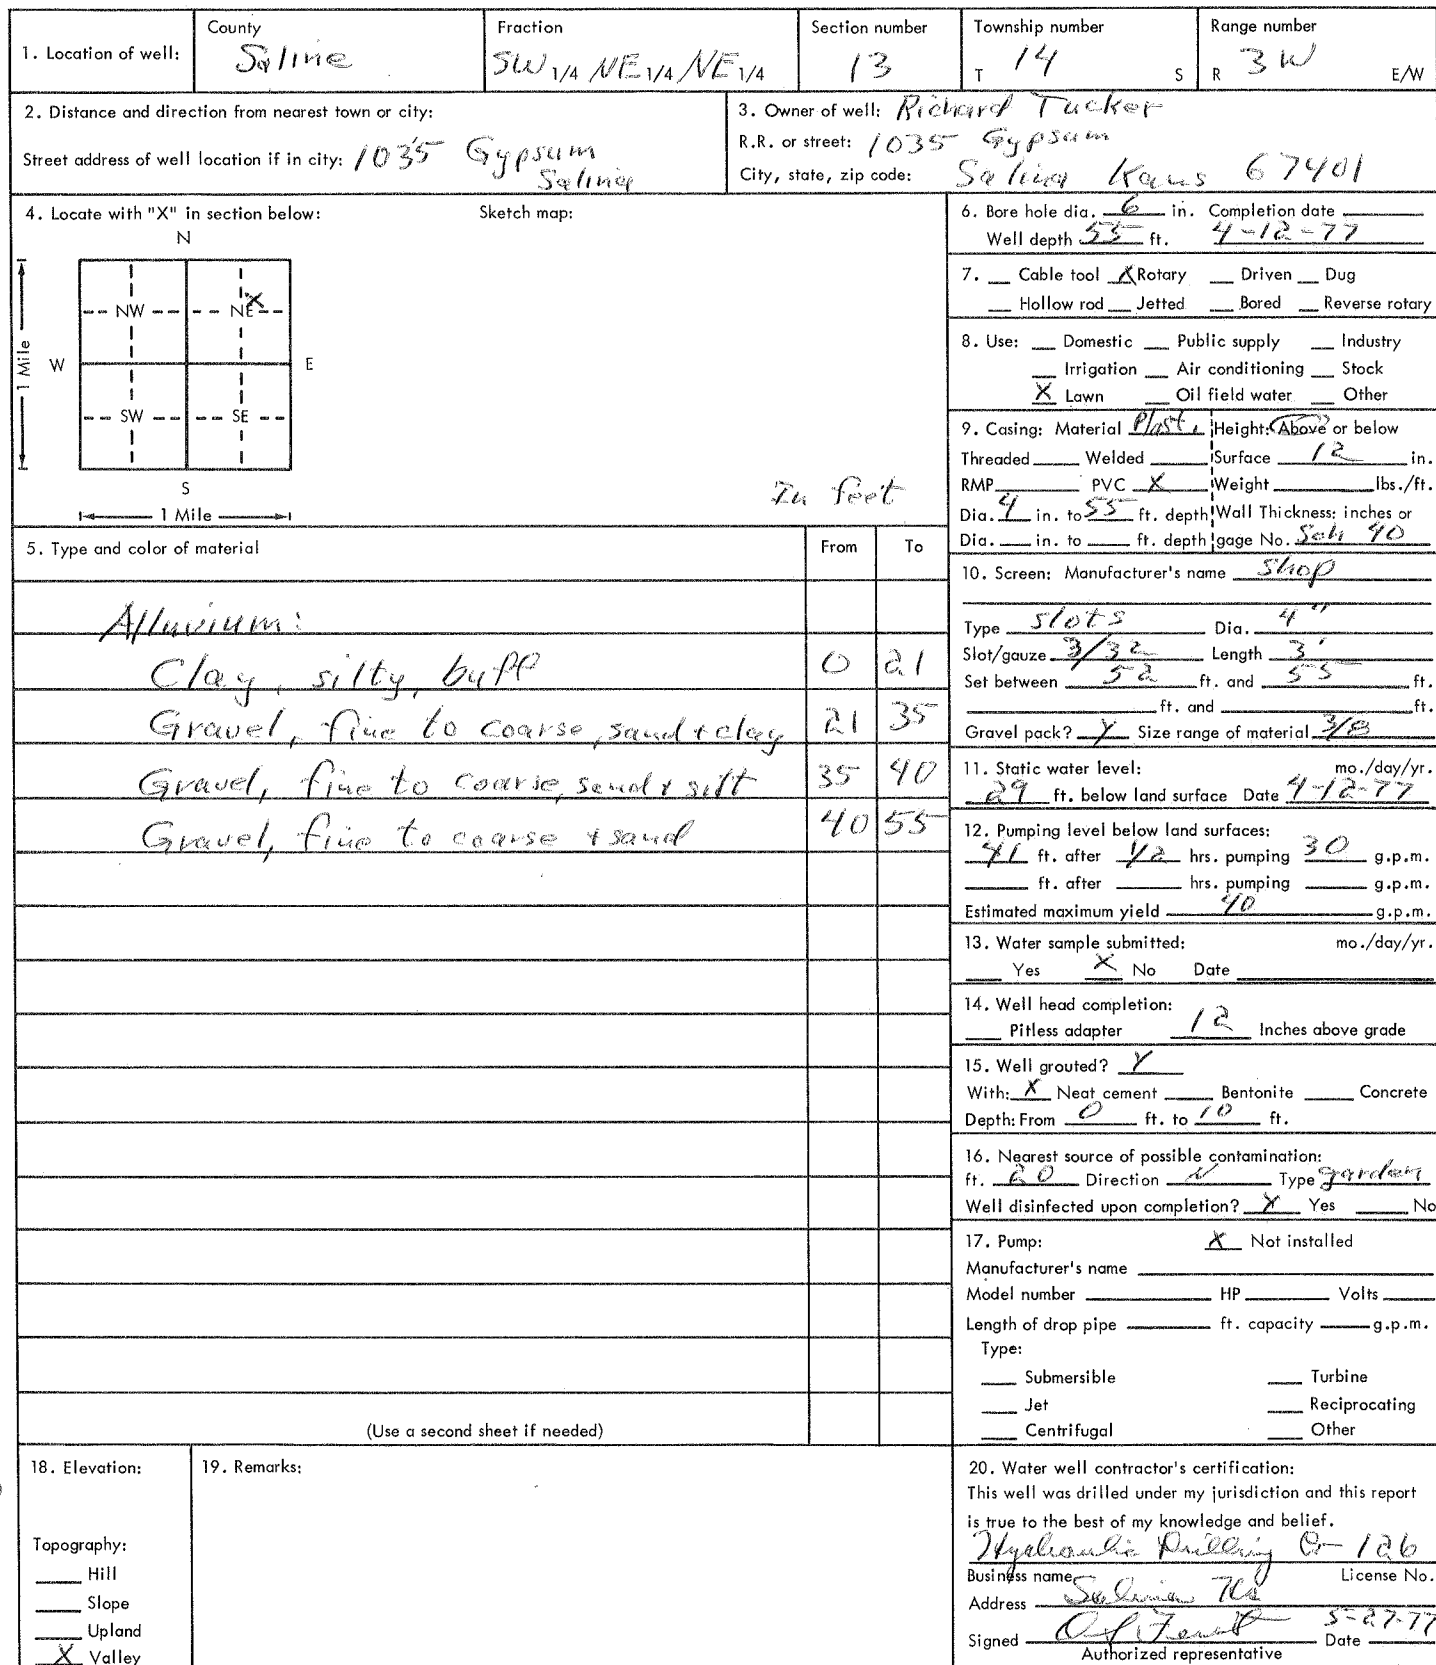 1. Location of well: County Saline Fraction SW 1/4 NE 1/4 NE 1/4 Section number 13 Township number T 14 S Range number R 3W E/W
2. Distance and direction from nearest town or city:
Street address of well location if in city: 1035 Gypsum
Salina
3. Owner of well: Richard Tucker
R.R. or street: 1035 Gypsum
City, state, zip code: Salina Kans 67401
4. Locate with "X" in section below: Sketch map:
N
NW NE X
W E
1 Mile
SW SE
S
1 Mile
In feet
5. Type and color of material From To
Alluvium:
Clay, silty, buff 0 21
Gravel, fine to coarse, sand + clay 21 35
Gravel, fine to coarse, sand + silt 35 40
Gravel, fine to coarse + sand 40 55
(Use a second sheet if needed)
6. Bore hole dia. 6 in. Completion date
Well depth 55 ft. 4-12-77
7. Cable tool X Rotary Driven Dug
Hollow rod Jetted Bored Reverse rotary
8. Use: Domestic Public supply Industry
Irrigation Air conditioning Stock
X Lawn Oil field water Other
9. Casing: Material Plast. Height: Above or below
Threaded Welded Surface 12 in.
RMP PVC X Weight lbs./ft.
Dia. 4 in. to 55 ft. depth Wall Thickness: inches or
Dia. in. to ft. depth gage No. Sch 40
10. Screen: Manufacturer's name Shop
Type slots Dia. 4"
Slot/gauze 3/32 Length 3'
Set between 52 ft. and 55 ft.
ft. and ft.
Gravel pack? Y Size range of material 3/8
11. Static water level: mo./day/yr.
29 ft. below land surface Date 4-12-77
12. Pumping level below land surfaces:
41 ft. after 1/2 hrs. pumping 30 g.p.m.
ft. after hrs. pumping g.p.m.
Estimated maximum yield 40 g.p.m.
13. Water sample submitted: mo./day/yr.
Yes X No Date
14. Well head completion:
Pitless adapter 12 Inches above grade
15. Well grouted? Y
With: X Neat cement Bentonite Concrete
Depth: From 0 ft. to 10 ft.
16. Nearest source of possible contamination:
ft. 20 Direction N Type garden
Well disinfected upon completion? X Yes No
17. Pump: X Not installed
Manufacturer's name
Model number HP Volts
Length of drop pipe ft. capacity g.p.m.
Type:
Submersible Turbine
Jet Reciprocating
Centrifugal Other
18. Elevation:
Topography:
Hill
Slope
Upland
X Valley
19. Remarks:
20. Water well contractor's certification:
This well was drilled under my jurisdiction and this report
is true to the best of my knowledge and belief.
Hydraulic Drilling Co 126
Business name License No.
Address Salina Ks
Signed Date 5-27-77
Authorized representative